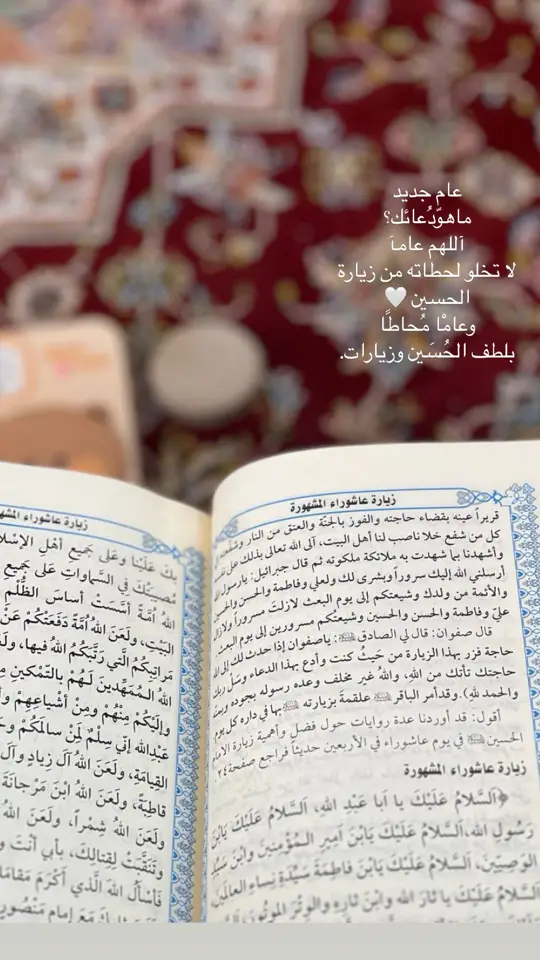 عام جديد
ماهوّدُعائك؟
اَللهم عاماَ
لا تخلو لحظاته من زيارة
الحسين 🤍
وعامْا مُحاطًا
بلطف الحُسَين وزيارات.
زيارة عاشوراء المشهورة
قريراً عينه بقضاء حاجته والفوز بالجنّة والعتق من النار وشفّعته في
كل من شفع خلا ناصب لنا أهل البيت، آلى الله تعالى بذلك على نفسه
وأشهدنا بما شهدت به ملائكة ملكوته ثم قال جبرائيل: يارسول الله
أرسلني الله إليك سروراً وبشرى لك ولعلي وفاطمة والحسن والحسين
والأئمة من ولدك وشيعتكم إلى يوم البعث لازلت مسروراً ولازال
عليّ وفاطمة والحسن والحسين وشيعتكم مسرورين إلى يوم البعث
قال صفوان: قال لي الصادق: ياصفوان إذا حدث لك إلى الله
حاجة فزر بهذا الزيارة من حَيثُ كنت وأدع بهذا الدعاء وسَلْ ربك
حاجتك تأتك من الله، واللهُ غير مخلف وعده رسوله بجوده وبمنّه
والحمد لله). وقد أمر الباقر علقمةَ بزيارته بها في داره كل يوم
أقول: قد أوردنا عدة روايات حول فضل وأهمية زيارة الإمام
الحسين في يوم عاشوراء في الأربعين حديثاً فراجع صفحة ٢٤
زيارة عاشوراء المشهورة
﴿اَلسَّلامُ عَلَيْكَ يا اَبا عَبْدِ اللهِ، اَلسَّلامُ عَلَيْكَ يَابْنَ
رَسُولِ اللهِ، اَلسَّلامُ عَلَيْكَ يَابْنَ اَميرِ الْمُؤْمِنينَ وابْنَ سَيِّدِ
الوَصِيّينَ، اَلسَّلامُ عَلَيْكَ يَابْنَ فاطِمَةَ سَيِّدَةِ نِساءِ العالَمينَ،
اَلسَّلامُ عَلَيْكَ يا ثارَ اللهِ وابْنَ ثارِهِ والوِتْرَ المَوتُورَ،
زيارة عاشوراء المشهورة
بكَ عَلَيْنا وعَلى جَميعِ اَهْلِ الإسْلامِ
مُصيبَتُكَ في السَّماواتِ عَلى جَميعِ
اللهُ اُمَّةً اَسَّسَتْ اَساسَ الظُّلْمِ
البَيْتِ، ولَعَنَ اللهُ اُمَّةً دَفَعَتْكُمْ عَنْ
مَراتِبِكُمُ الَّتي رَتَّبَكُمُ اللهُ فيها،
اللهُ المُمَهِّدينَ لَهُمْ بِالتَّمْكينِ
وإلَيْكُمْ مِنْهُمْ ومِنْ اَشْياعِهِمْ
عَبْدِاللهِ إنّي سِلْمٌ لِمَنْ سالَمَكُمْ
القِيامَةِ، ولَعَنَ اللهُ آلَ زِيادٍ وآلَ
قاطِبَةً، ولَعَنَ اللهُ ابْنَ مَرْجانَةَ
ولَعَنَ اللهُ شِمْراً، ولَعَنَ اللهُ
وتَنَقَّبَتْ لِقِتالِكَ، بِأبي اَنْتَ
فَأسْألُ اللهَ الَّذي اَكْرَمَ مَقامَكَ
مَعَ إمامٍ مَنْصُورٍ